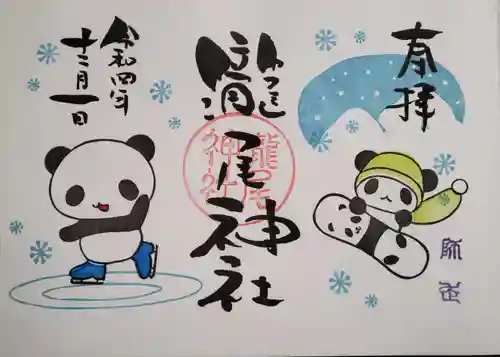 奉拝
龍尾神社
龍尾
神社
令和四年
十二月一日
師走